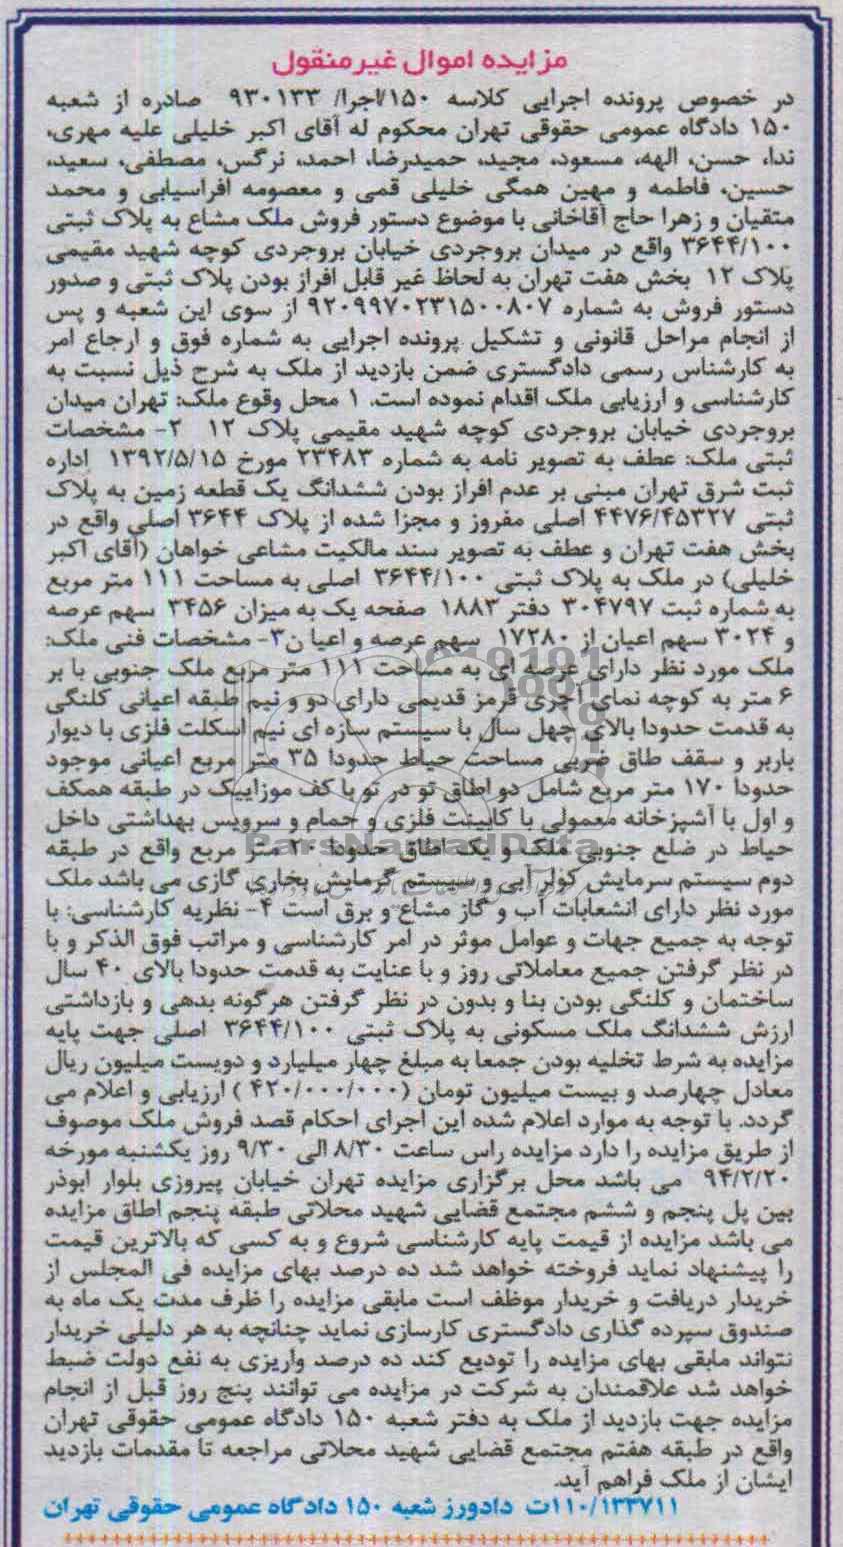 مزایده اموال غیرمنقول
در خصوص پرونده اجرایی کلاسه ۱۵۰/اجرا/ ۹۳۰۱۳۳ صادره از شعبه
۱۵۰ دادگاه عمومی حقوقی تهران محکوم له آقای اکبر خلیلی علیه مهری،
ندا، حسن، الهه، مسعود، مجید، حمیدرضا، احمد، نرگس، مصطفی، سعید،
حسین، فاطمه و مهین همگی خلیلی قمی و معصومه افراسیابی و محمد
متقیان و زهرا حاج آقاخانی با موضوع دستور فروش ملک مشاع به پلاک ثبتی
۳۶۴۴/۱۰۰ واقع در میدان بروجردی خیابان بروجردی کوچه شهید مقیمی
پلاک ۱۲ بخش هفت تهران به لحاظ غیر قابل افراز بودن پلاک ثبتی و صدور
دستور فروش به شماره ۹۲۰۹۹۷۰۲۳۱۵۰۰۸۰۷ از سوی این شعبه و پس
از انجام مراحل قانونی و تشکیل پرونده اجرایی به شماره فوق و ارجاع امر
به کارشناس رسمی دادگستری ضمن بازدید از ملک به شرح ذیل نسبت به
کارشناسی و ارزیابی ملک اقدام نموده است. ۱ محل وقوع ملک: تهران میدان
بروجردی خیابان بروجردی کوچه شهید مقیمی پلاک ۱۲ ۲- مشخصات
ثبتی ملک: عطف به تصویر نامه به شماره ۲۳۴۸۳ مورخ ۱۳۹۲/۵/۱۵ اداره
ثبت شرق تهران مبنی بر عدم افراز بودن ششدانگ یک قطعه زمین به پلاک
ثبتی ۴۴۷۶/۴۵۳۲۷ اصلی مفروز و مجزا شده از پلاک ۳۶۴۴ اصلی واقع در
بخش هفت تهران و عطف به تصویر سند مالکیت مشاعی خواهان (آقای اکبر
خلیلی) در ملک به پلاک ثبتی ۳۶۴۴/۱۰۰ اصلی به مساحت ۱۱۱ متر مربع
به شماره ثبت ۳۰۴۷۹۷ دفتر ۱۸۸۳ صفحه یک به میزان ۳۴۵۶ سهم عرصه
و ۳۰۲۴ سهم اعیان از ۱۷۲۸۰ سهم عرصه و اعیا ن۳- مشخصات فنی ملک:
ملک مورد نظر دارای عرصه ای به مساحت ۱۱۱ متر مربع ملک جنوبی با بر
۶ متر به کوچه نمای آجری قرمز قدیمی دارای دو و نیم طبقه اعیانی کلنگی
به قدمت حدودا بالای چهل سال با سیستم سازه ای نیم اسکلت فلزی با دیوار
باربر و سقف طاق ضربی مساحت حیاط حدودا ۳۵ متر مربع اعیانی موجود
حدودا ۱۷۰ متر مربع شامل دو اطاق تو در تو با کف موزاییک در طبقه همکف
و اول با آشپزخانه معمولی با کابینت فلزی و حمام و سرویس بهداشتی داخل
حیاط در ضلع جنوبی ملک و یک اطاق حدودا ۲۰ متر مربع واقع در طبقه
دوم سیستم سرمایش کولر آبی و سیستم گرمایش بخاری گازی می باشد ملک
مورد نظر دارای انشعابات آب و گاز مشاع و برق است ۴- نظریه کارشناسی: با
توجه به جمیع جهات و عوامل موثر در امر کارشناسی و مراتب فوق الذکر و با
در نظر گرفتن جمیع معاملاتی روز و با عنایت به قدمت حدودا بالای ۴۰ سال
ساختمان و کلنگی بودن بنا و بدون در نظر گرفتن هرگونه بدهی و بازداشتی
ارزش ششدانگ ملک مسکونی به پلاک ثبتی ۳۶۴۴/۱۰۰ اصلی جهت پایه
مزایده به شرط تخلیه بودن جمعا به مبلغ چهار میلیارد و دویست میلیون ریال
معادل چهارصد و بیست میلیون تومان (۴۲۰/۰۰۰/۰۰۰ ) ارزیابی و اعلام می
گردد. با توجه به موارد اعلام شده این اجرای احکام قصد فروش ملک موصوف
از طریق مزایده را دارد مزایده راس ساعت ۸/۳۰ الی ۹/۳۰ روز یکشنبه مورخه
۹۴/۲/۲۰ می باشد محل برگزاری مزایده تهران خیابان پیروزی بلوار ابوذر
بین پل پنجم و ششم مجتمع قضایی شهید محلاتی طبقه پنجم اطاق مزایده
می باشد مزایده از قیمت پایه کارشناسی شروع و به کسی که بالاترین قیمت
را پیشنهاد نماید فروخته خواهد شد ده درصد بهای مزایده فی المجلس از
خریدار دریافت و خریدار موظف است مابقی مزایده را ظرف مدت یک ماه به
صندوق سپرده گذاری دادگستری کارسازی نماید چنانچه به هر دلیلی خریدار
نتواند مابقی بهای مزایده را تودیع کند ده درصد واریزی به نفع دولت ضبط
خواهد شد علاقمندان به شرکت در مزایده می توانند پنج روز قبل از انجام
مزایده جهت بازدید از ملک به دفتر شعبه ۱۵۰ دادگاه عمومی حقوقی تهران
واقع در طبقه هفتم مجتمع قضایی شهید محلاتی مراجعه تا مقدمات بازدید
ایشان از ملک فراهم آید.
۱۱۰/۱۳۳۷۱۱ت دادورز شعبه ۱۵۰ دادگاه عمومی حقوقی تهران
ParsNamadData